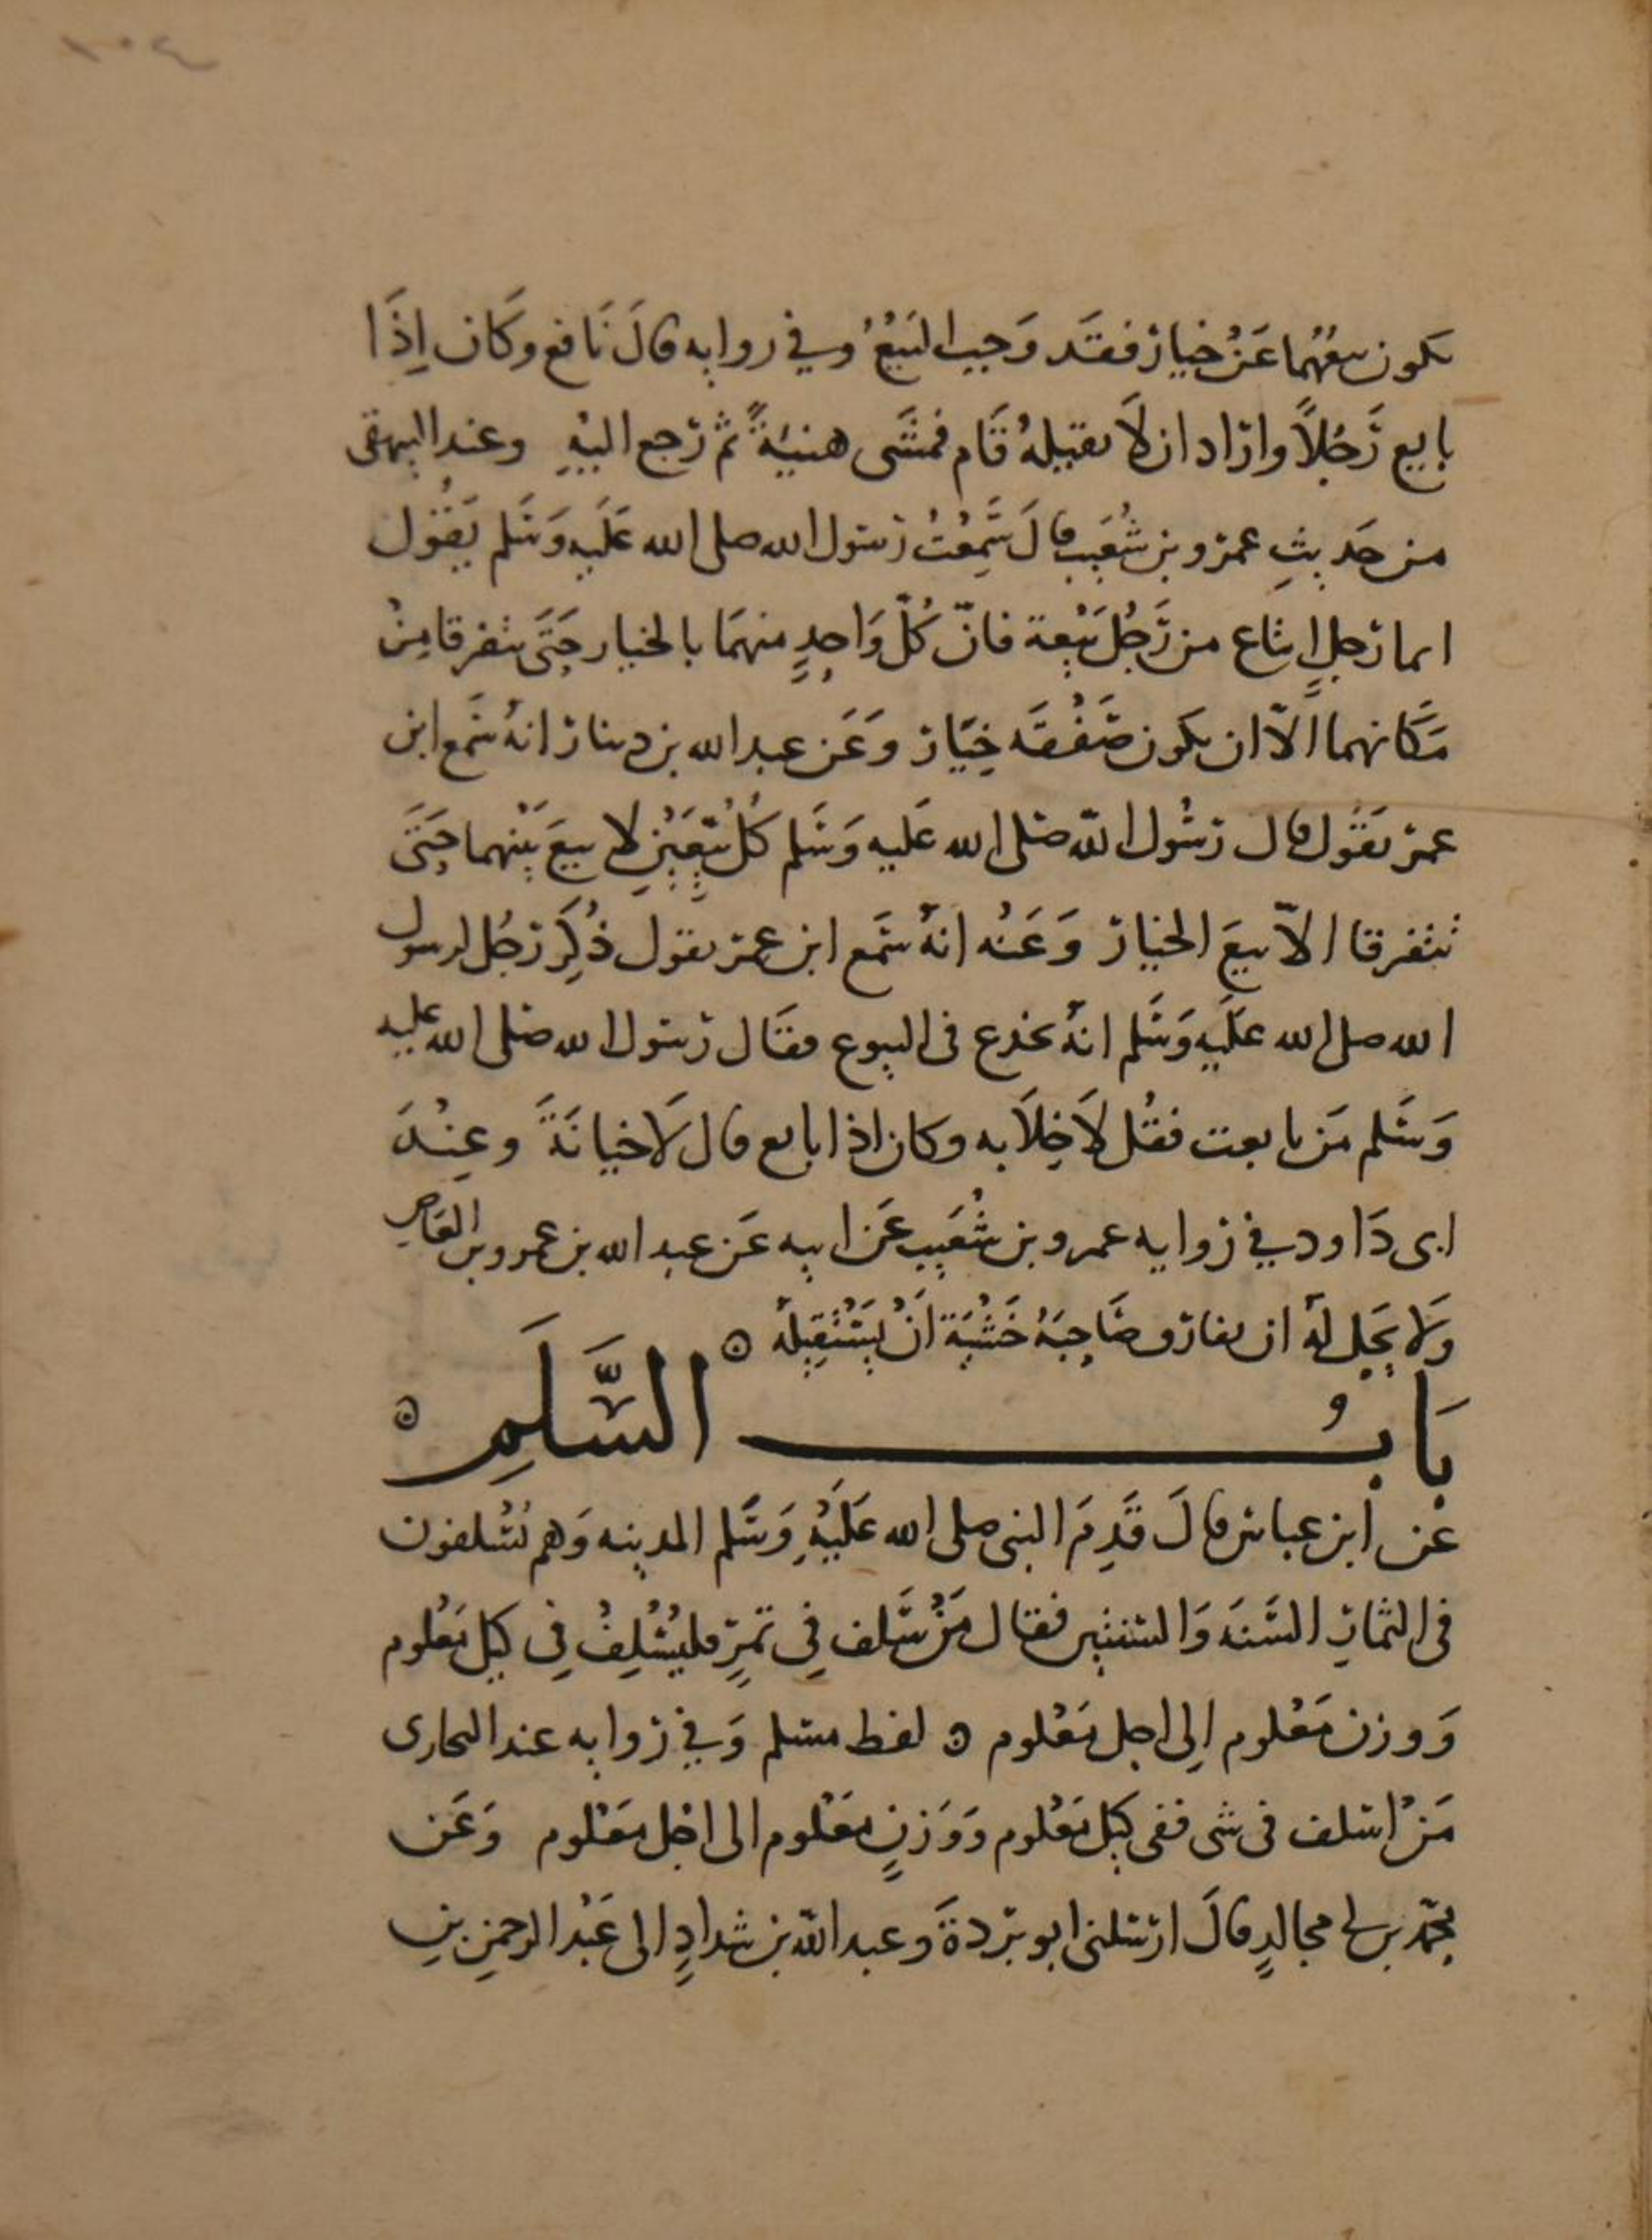 ١٠٤
يكون بيعهُما عَنْ خيار فقَد وَجب البَيْعُ وفي روايه قالَ نَافع وَكان اِذَا
بايع رَجُلاً واراد ان لاَ يقيلهُ قَام فمشَى هنيَّةً ثم رجع اليْهِ وعند البيهقى
من حَديثِ عمرو بن شُعَيب قالَ سَمِعْتُ رسُول الله صلى الله عَلَيهِ وَسَلم يَقُول
ايما رَجلٍ ابتاع من رَجُل بَيْعة فانّ كُلّ وَاحِدٍ منهمَا بالخيار حَتَى يتفرقا مِنْ
مَكَانهما اِلاّ ان يكون صَفْقَه خِيَار وَعَن عبد الله بن دينار انهُ سَمع ابن
عمر يَقُول قال رسُول الله صَلى الله عَليه وَسَلم كُلّ بَيّعَيْنِ لا بيعَ بَيْنهما حَتَى
يتفرقا الاّ بيعَ الخيار وَعَنْه انهُ سَمع ابن عمر يقول ذُكِرَ رَجُل لرسول
الله صلى الله عَلَيهِ وَسَلم انهُ يخدع فى البيوع فقَال رسُول الله صَلى الله عليه
وَسَلم مَن بايعت فقُل لاَ خِلاَبه وكان اذا بايع قال لاَ خيانَةَ وعِنْدَ
ابى دَاود في روايه عمرو بن شُعَيب عَن ابيه عَن عبد الله بن عمرو بن العَاصِ
وَلا يَحِل لهُ ان يفارق صَاحِبَهُ خَشْيَة اَنْ يَسْتَقِيلهُ ه
بَابُ السَّلَمِ ه
عن ابن عباس قالَ قَدِمَ النبى صلى الله عَلَيْهِ وَسَلم المدينه وَهم يُسْلفون
فى الثمارِ السَنَه وَالسنتين فقال مَنْ سَلف فِي تمرٍ فليُسْلِفْ فِي كيل مَعْلوم
وَوزن مَعْلوم اِلى اجل مَعْلوم ه لفظ مسلم وَفي روايه عند البخارى
مَنْ اسلف فى شى ففى كيل مَعْلوم وَوَزنٍ مَعْلوم الى اجل مَعْلوم وَعَن
محمّد بن ابى مجالدٍ قالَ ارسَلنى ابو بردةَ وعبد الله بن شدادٍ الى عَبْد الرحمنِ بنِ